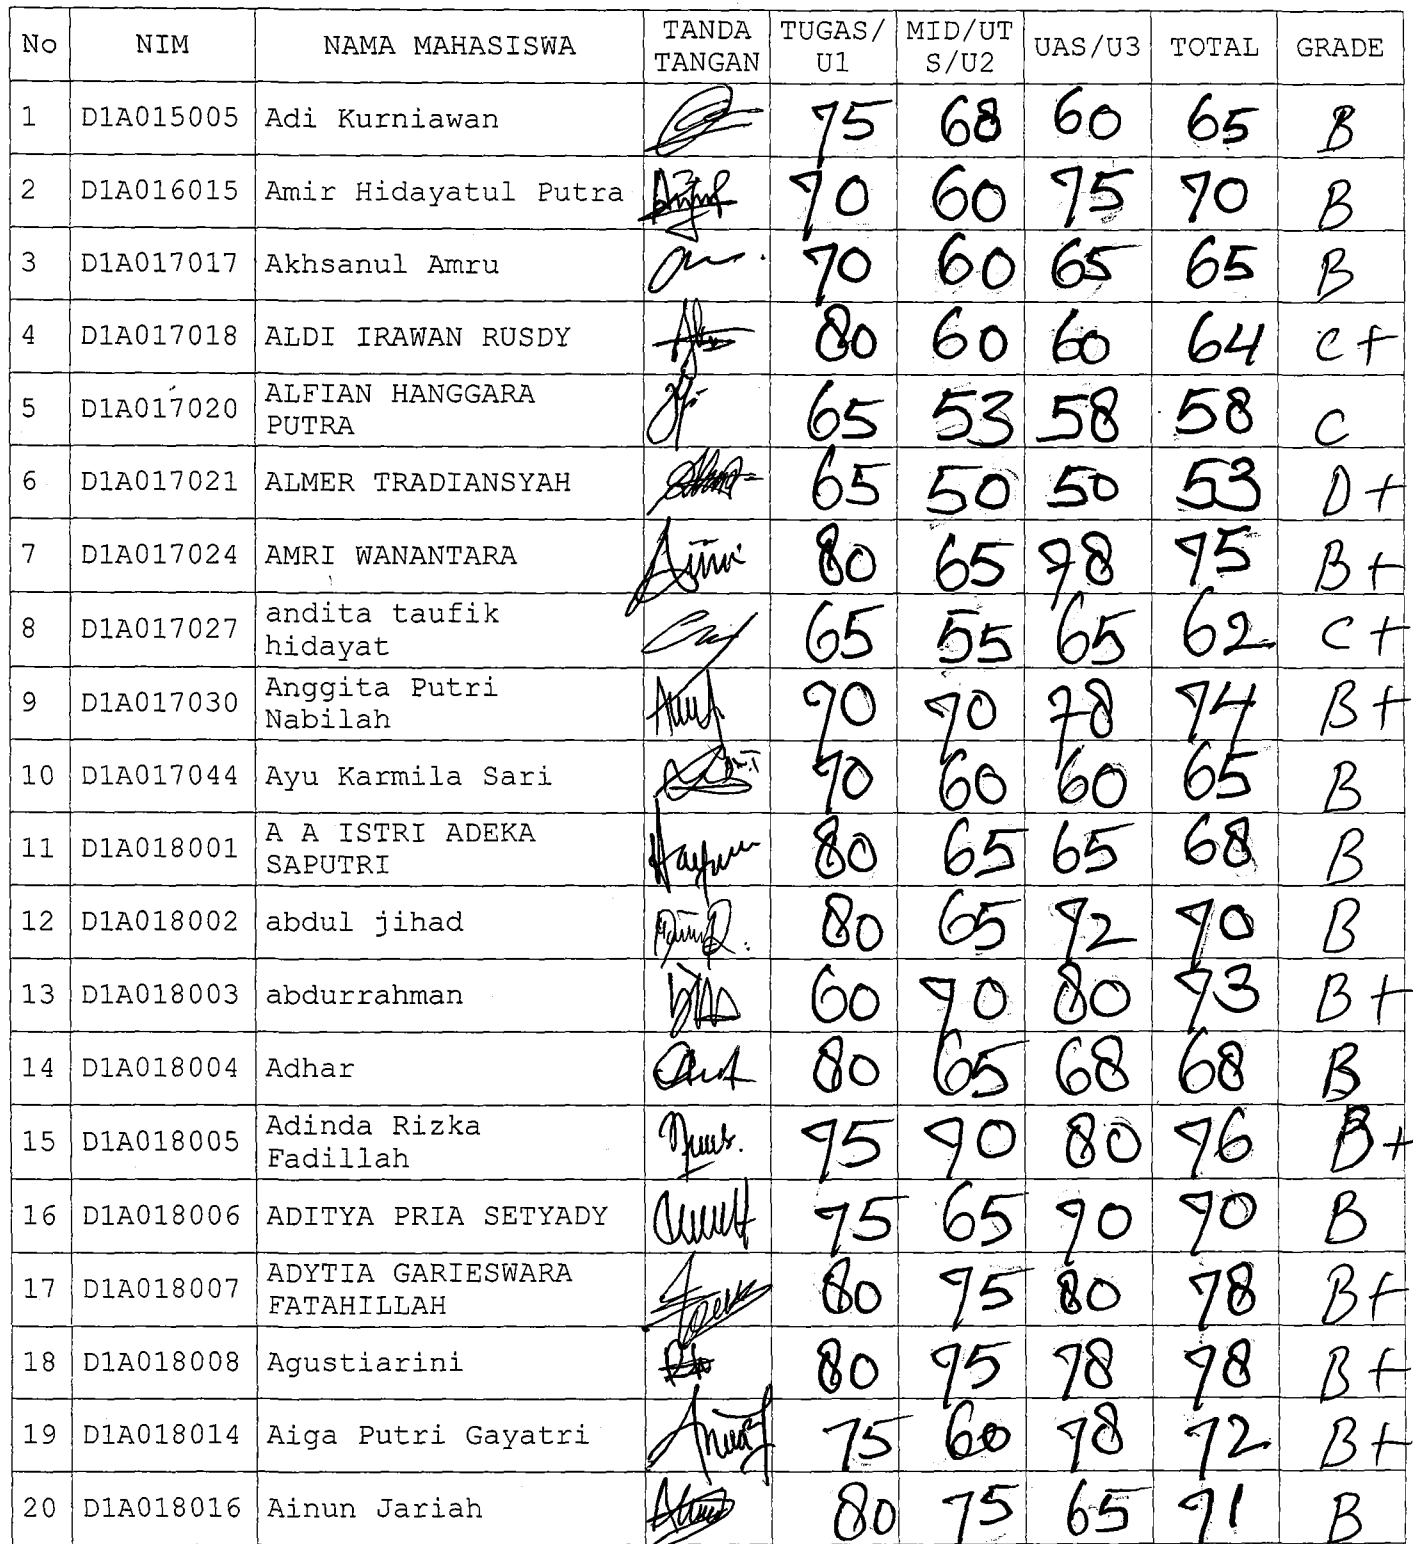 No NIM NAMA MAHASISWA TANDA TANGAN TUGAS/U1 MID/UTS/U2 UAS/U3 TOTAL GRADE
1 D1A015005 Adi Kurniawan 75 68 60 65 B
2 D1A016015 Amir Hidayatul Putra 70 60 75 70 B
3 D1A017017 Akhsanul Amru 70 60 65 65 B
4 D1A017018 ALDI IRAWAN RUSDY 80 60 60 64 C+
5 D1A017020 ALFIAN HANGGARA PUTRA 65 53 58 58 C
6 D1A017021 ALMER TRADIANSYAH 65 50 50 53 D+
7 D1A017024 AMRI WANANTARA 80 65 78 75 B+
8 D1A017027 andita taufik hidayat 65 55 65 62 C+
9 D1A017030 Anggita Putri Nabilah 70 70 78 74 B+
10 D1A017044 Ayu Karmila Sari 70 60 60 65 B
11 D1A018001 A A ISTRI ADEKA SAPUTRI 80 65 65 68 B
12 D1A018002 abdul jihad 80 65 72 70 B
13 D1A018003 abdurrahman 60 70 80 73 B+
14 D1A018004 Adhar 80 65 68 68 B
15 D1A018005 Adinda Rizka Fadillah 75 70 80 76 B+
16 D1A018006 ADITYA PRIA SETYADY 75 65 70 70 B
17 D1A018007 ADYTIA GARIESWARA FATAHILLAH 80 75 80 78 B+
18 D1A018008 Agustiarini 80 75 78 78 B+
19 D1A018014 Aiga Putri Gayatri 75 60 78 72 B+
20 D1A018016 Ainun Jariah 80 75 65 71 B